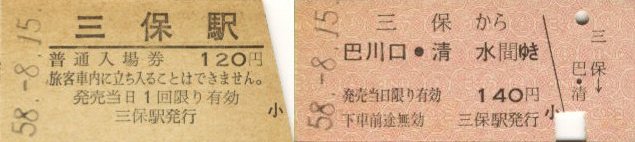 58.-8.15.
三保駅
普通入場券 120円
旅客車内に立ち入ることはできません。
発売当日1回限り有効
三保駅発行
小
58.-8.15.
三保から
巴川口・清水間ゆき
発売当日限り有効 140円
下車前途無効 三保駅発行
三保→
巴・清
小